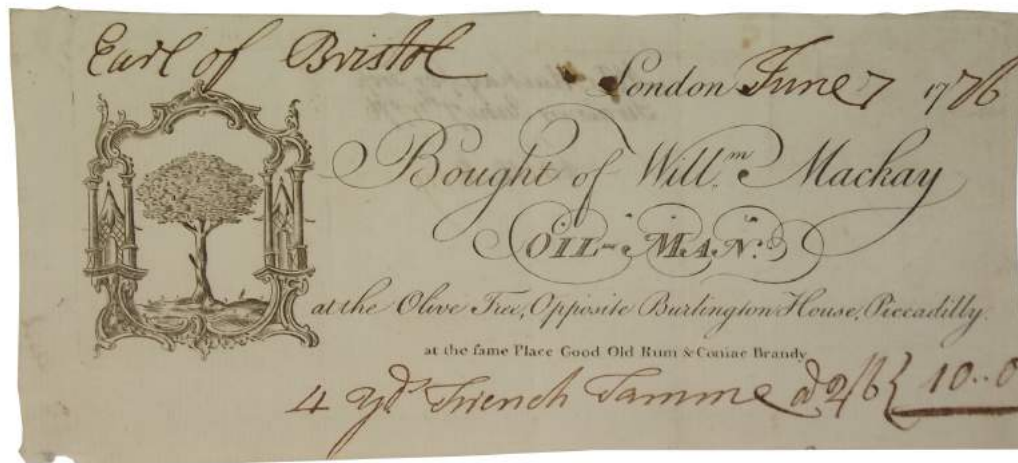 Earl of Bristol
London June 7 1776
Bought of Will.m Mackay
OIL-MAN.
at the Olive Tree, Opposite Burlington House, Piccadilly.
at the ſame Place Good Old Rum & Coniac Brandy
4 yds French Tamme @ 2/6 { 10..0